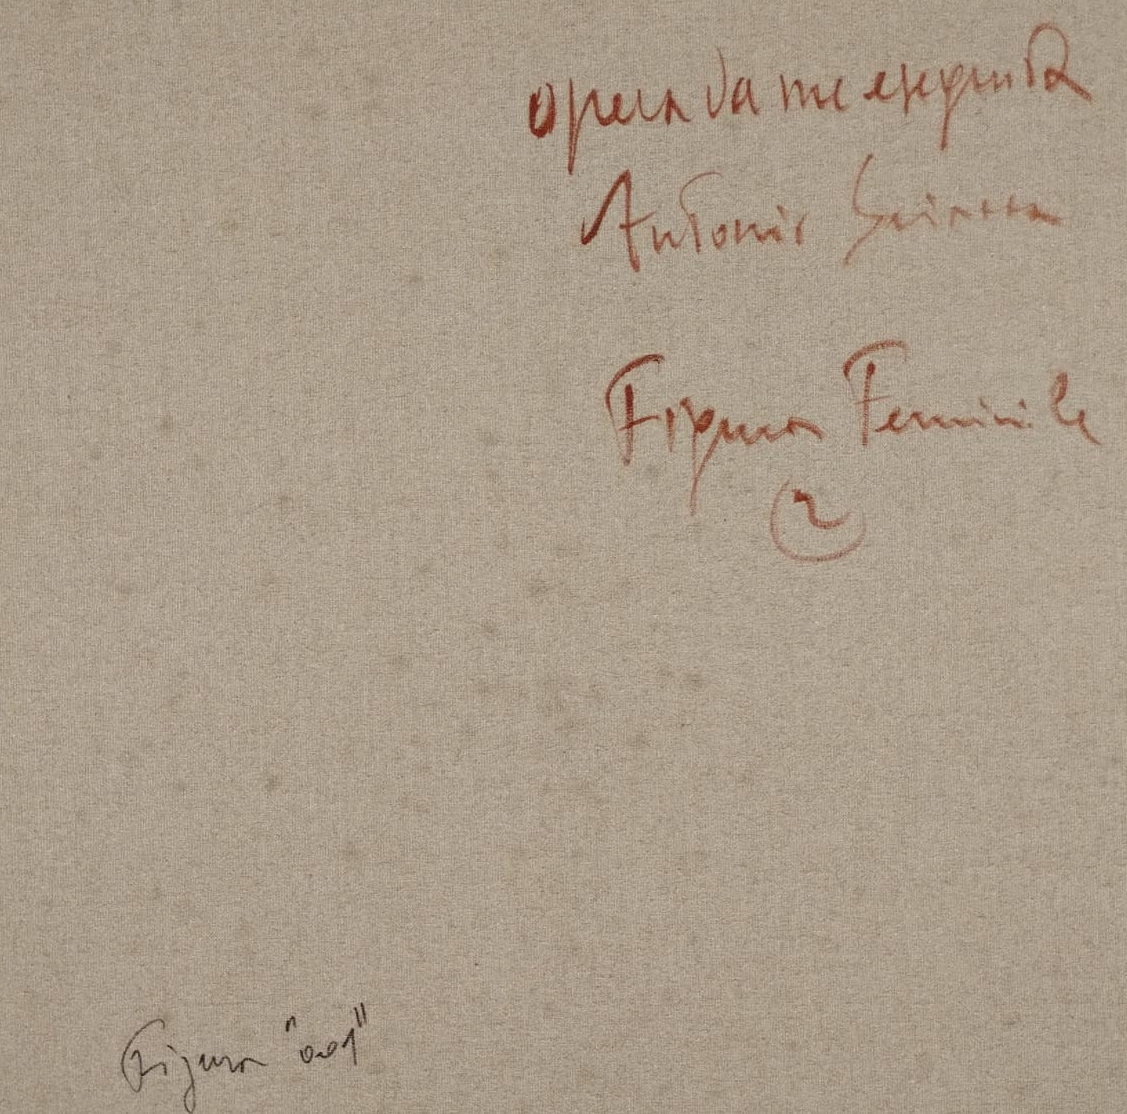 opera da me eseguita
Antonio
Figura Feminile
2
Figura "001"